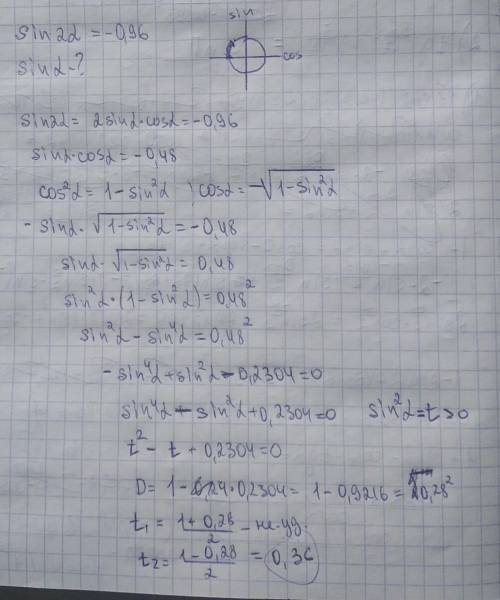 sin
sin2α = -0,96
cos
sinα - ?
sin2α = 2sinα·cosα = -0,96
sinα·cosα = -0,48
cos²α = 1 - sin²α ; cosα = -√(1-sin²α)
- sinα · √(1-sin²α) = -0,48
sinα · √(1-sin²α) = 0,48
sin²α · (1 - sin²α) = 0,48²
sin²α - sin⁴α = 0,48²
- sin⁴α + sin²α - 0,2304 = 0
sin⁴α - sin²α + 0,2304 = 0 sin²α = t > 0
t² - t + 0,2304 = 0
D = 1 - 4·0,2304 = 1 - 0,9216 = 0,28²
t₁ = (1+0,28)/2 - не уд.
t₂ = (1-0,28)/2 = 0,36